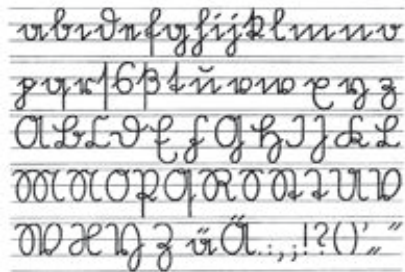 a b c d e f g h i j k l m n o
p q r ſ s ß t u v w x y z
A B C D E F G H I J K L
M N O P Q R S T U V
W X Y Z ü Ä . : , ; ! ? ( ) ' „ “